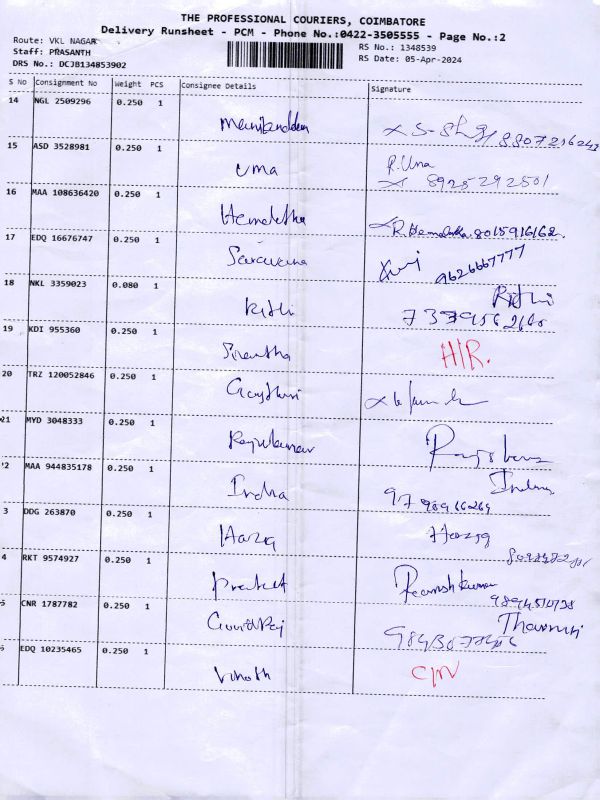 THE PROFESSIONAL COURIERS, COIMBATORE
Delivery Runsheet - PCM - Phone No.:0422-3505555 - Page No.:2
Route: VKL NAGAR
Staff: PRASANTH
DRS No.: DCJB134853902
RS No.: 1348539
RS Date: 05-Apr-2024
S No Consignment No Weight PCS Consignee Details Signature
14 NGL 2509296 0.250 1
8807216243
15 ASD 3528981 0.250 1 Uma R. Uma
8925292501
16 MAA 108636420 0.250 1 Hemaletha R. Hemalatha 8015916162.
17 EDQ 16676747 0.250 1 Saravana
9626667777
18 NKL 3359023 0.080 1 Rithi Rithi
7339562160
19 KDI 955360 0.250 1 H/R.
20 TRZ 120052846 0.250 1 Gaythri
21 MYD 3048333 0.250 1 Rajukumar
22 MAA 944835178 0.250 1 Indha
9798966269
3 DDG 263870 0.250 1 Harzq
4 RKT 9574927 0.250 1 Rameshkumar
9894510738
5 CNR 1787782 0.250 1 Govindraj
6 EDQ 10235465 0.250 1 Vinoth